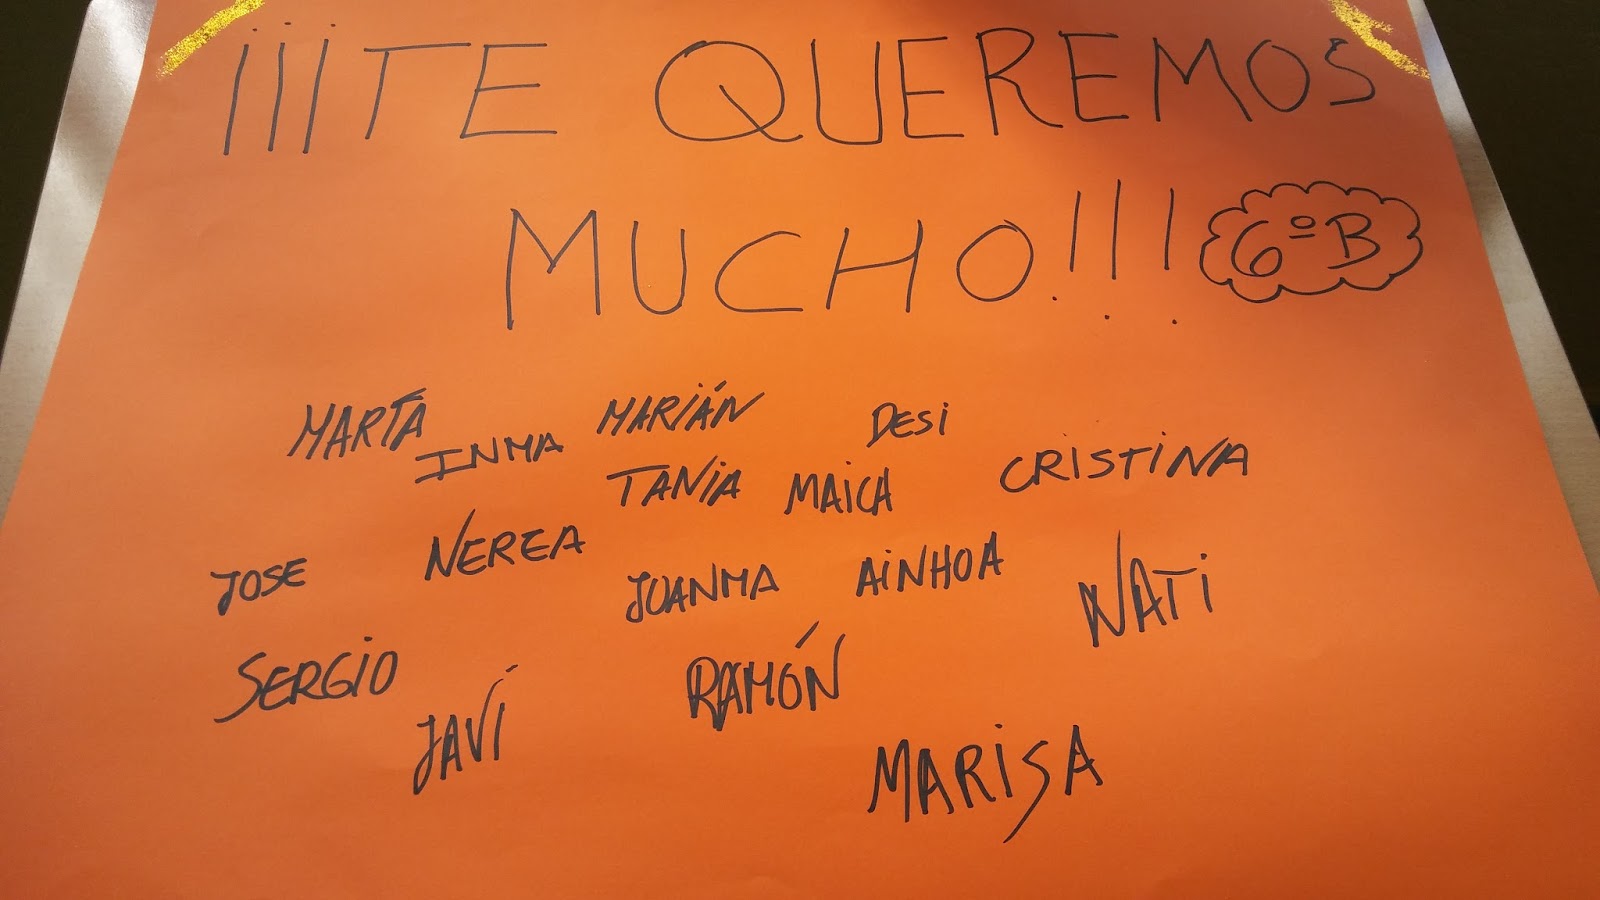 ¡¡¡TE QUEREMOS
MUCHO!!! 6º B
MARTA INMA MARIÁN DESI
TANIA MAICA CRISTINA
JOSE NEREA JUANMA AINHOA NATI
SERGIO JAVI RAMÓN
MARISA